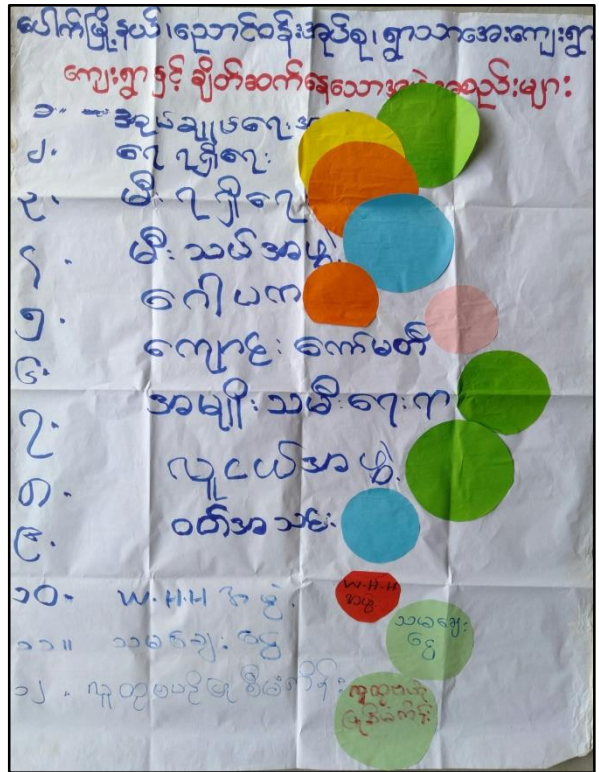 ပေါက်မြို့နယ်၊ညောင်ဝန်းအုပ်စု၊ရွာသာအေးကျေးရွာ
ကျေးရွာနှင့် ချိတ်ဆက်နေသောအဖွဲ့အစည်းများ
၁. အုပ်ချုပ်ရေး
၂. ရေရရှိရေး
၃. မီးရရှိရေး
၄. မီးသပ်အဖွဲ့
၅. ဂေါပက
၆. ကျောင်းကော်မတီ
၇. အမျိုးသမီးရေးရာ
၈. လူငယ်အဖွဲ့
၉. ဝတ်အသင်း
၁၀. W.H.H အဖွဲ့. W.H.H အဖွဲ့
၁၁။ သမချေးငွေ သမချေးငွေ
၁၂. လူထုဗဟိုပြုစီမံကိန်း လူထုဗဟိုပြုစီမံကိန်း